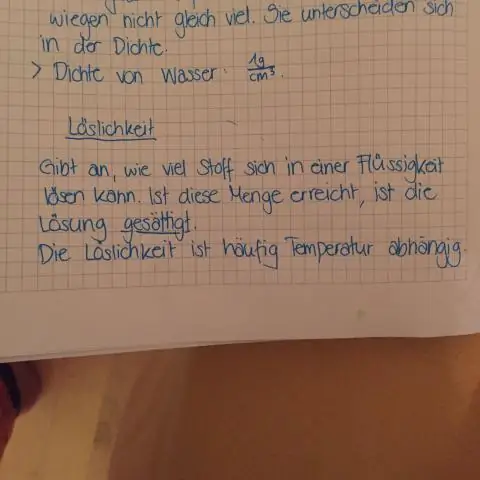 wiegen nicht gleich viel. Sie unterscheiden sich
in der Dichte.
> Dichte von Wasser: 1g/cm³.
Löslichkeit
Gibt an, wie viel Stoff sich in einer Flüssigkeit
lösen kann. Ist diese Menge erreicht, ist die
Lösung gesättigt.
Die Löslichkeit ist häufig Temperatur abhängig.